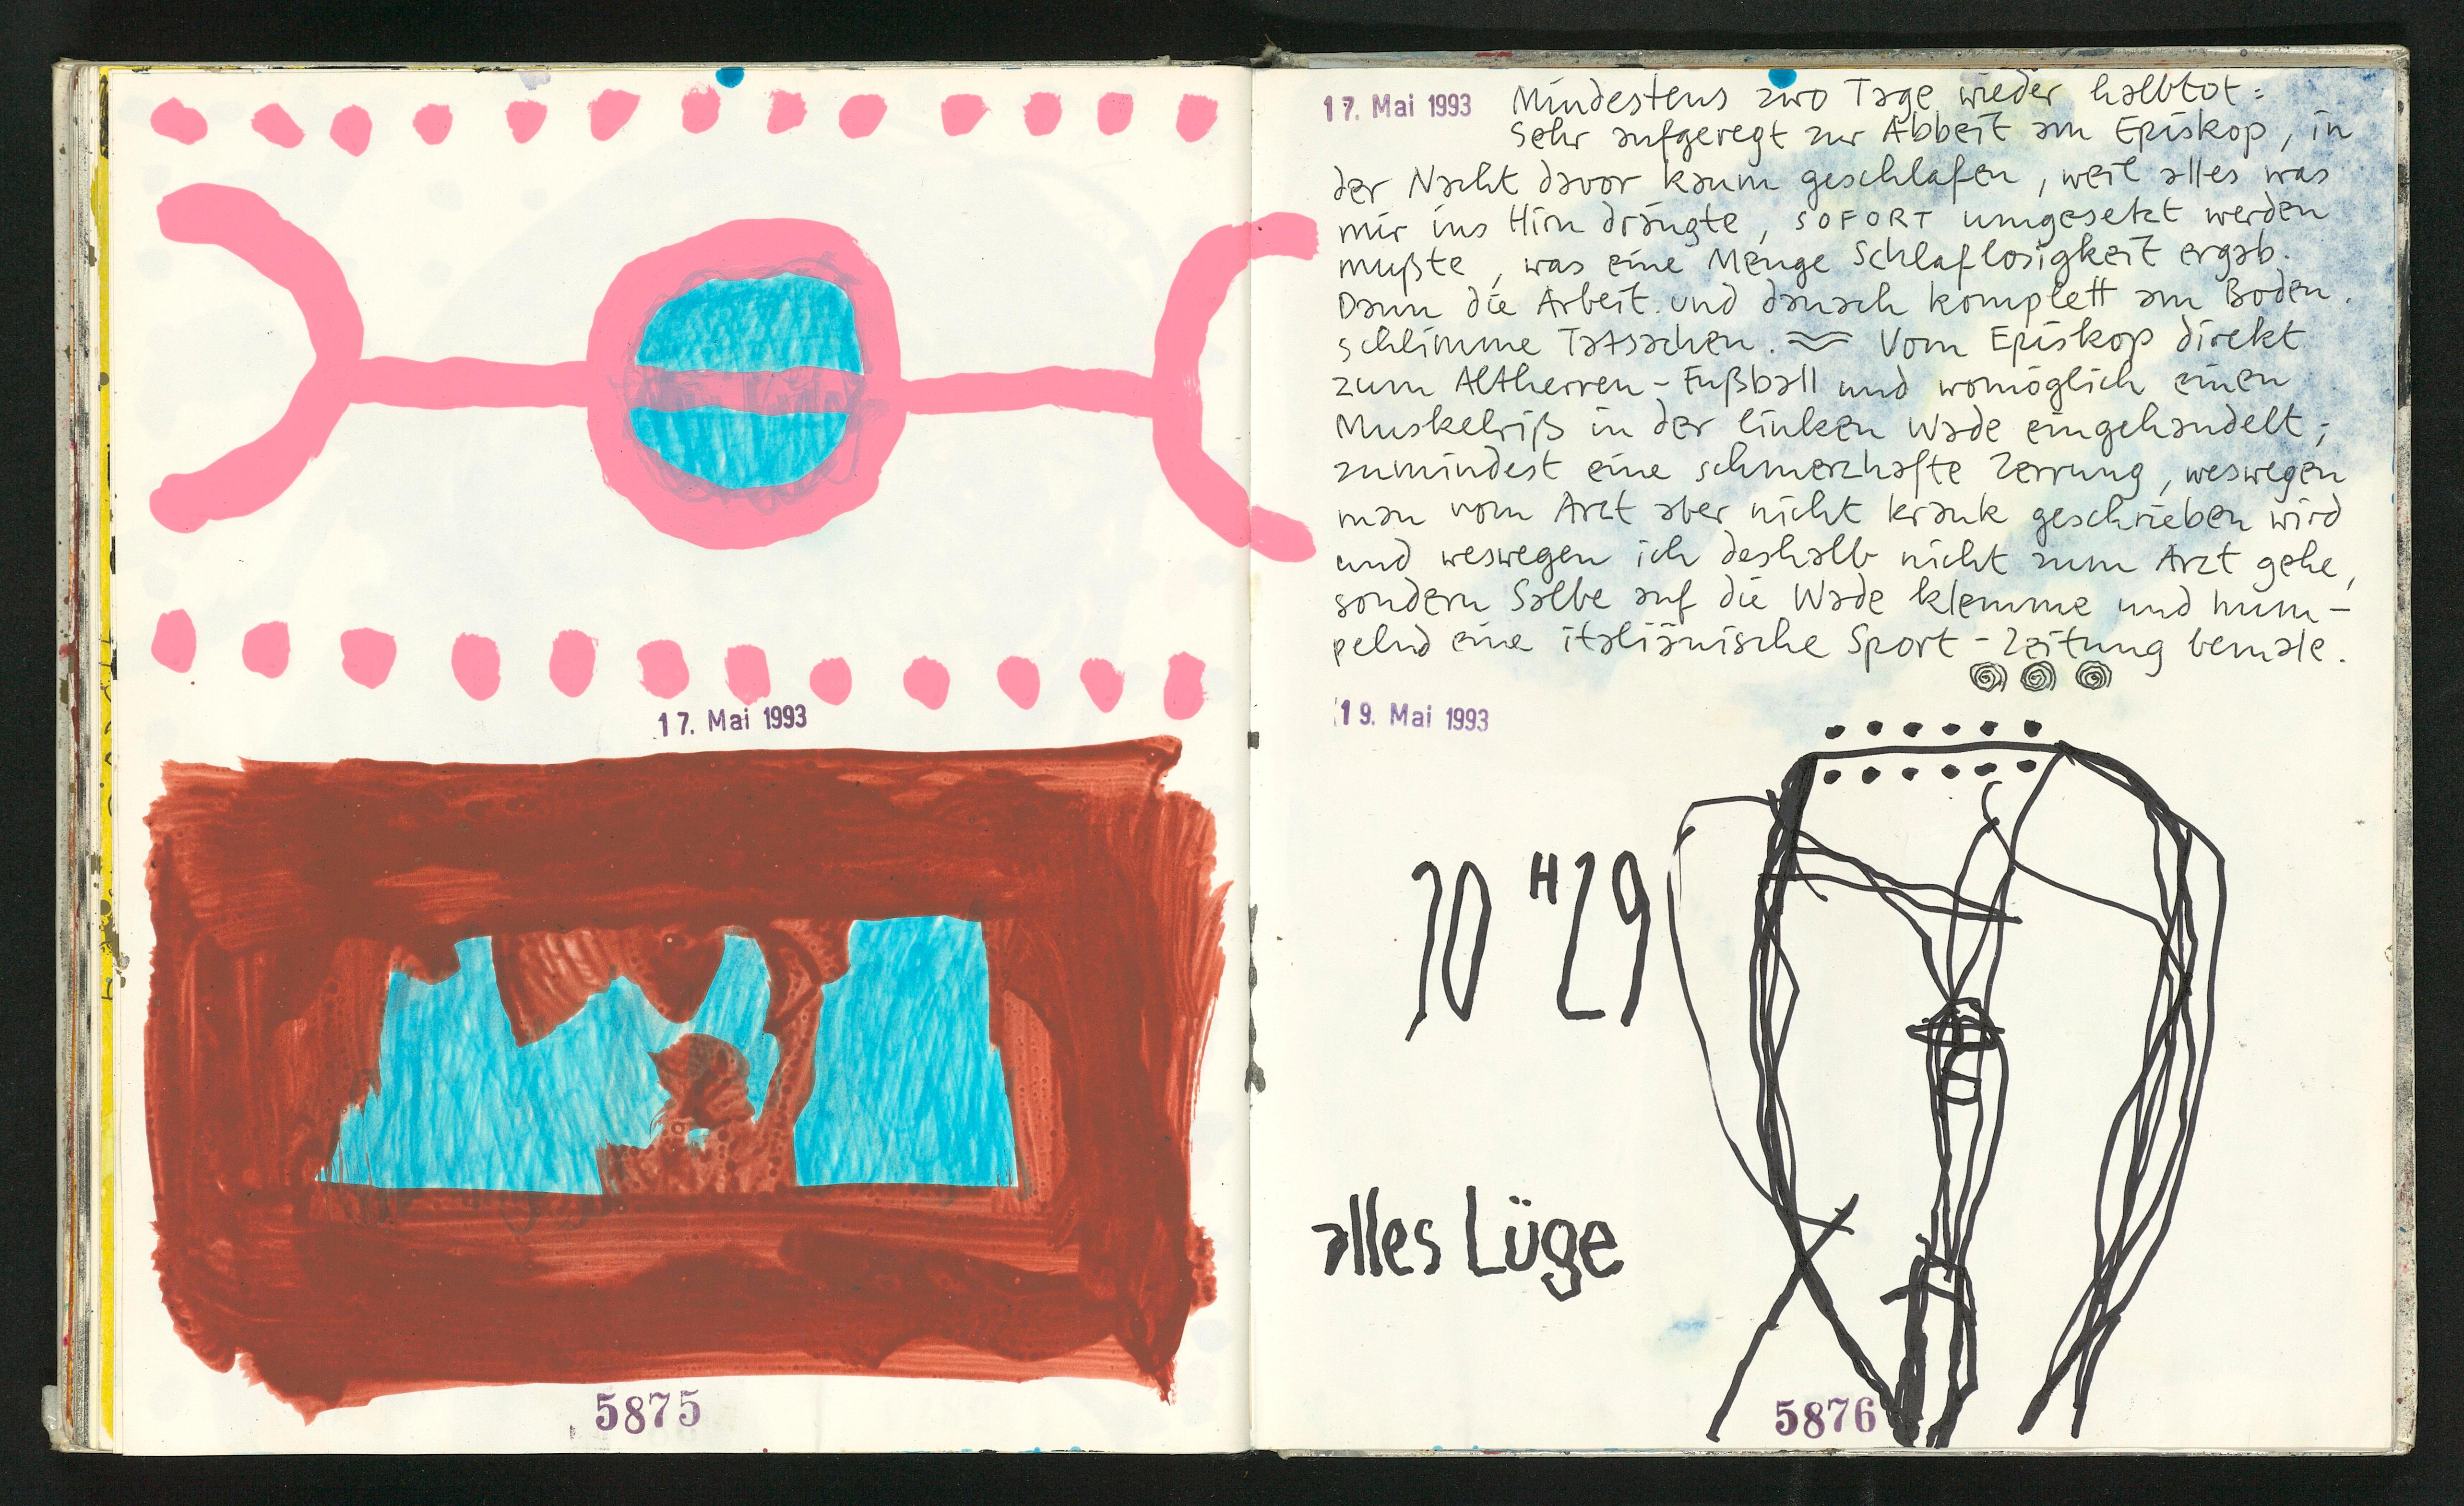 17. Mai 1993
5875
17. Mai 1993 Mindestens zwo Tage wieder halbtot:
Sehr aufgeregt zur Abbeit am Episkop, in
der Nacht davor kaum geschlafen, weil alles was
mir ins Hirn drängte, SOFORT umgesetzt werden
mußte, was eine Menge Schlaflosigkeit ergab.
Dann die Arbeit und danach komplett am Boden.
schlimme Tatsachen. Vom Episkop direkt
zum Altherren-Fußball und womöglich einen
Muskelriß in der linken Wade eingehandelt;
zumindest eine schmerzhafte Zerrung, weswegen
man vom Arzt aber nicht krank geschrieben wird
und weswegen ich deshalb nicht zum Arzt gehe,
sondern Salbe auf die Wade klemme und hum-
pelnd eine italiänische Sport-Zeitung bemale.
19. Mai 1993
10 H 29
alles Lüge
5876